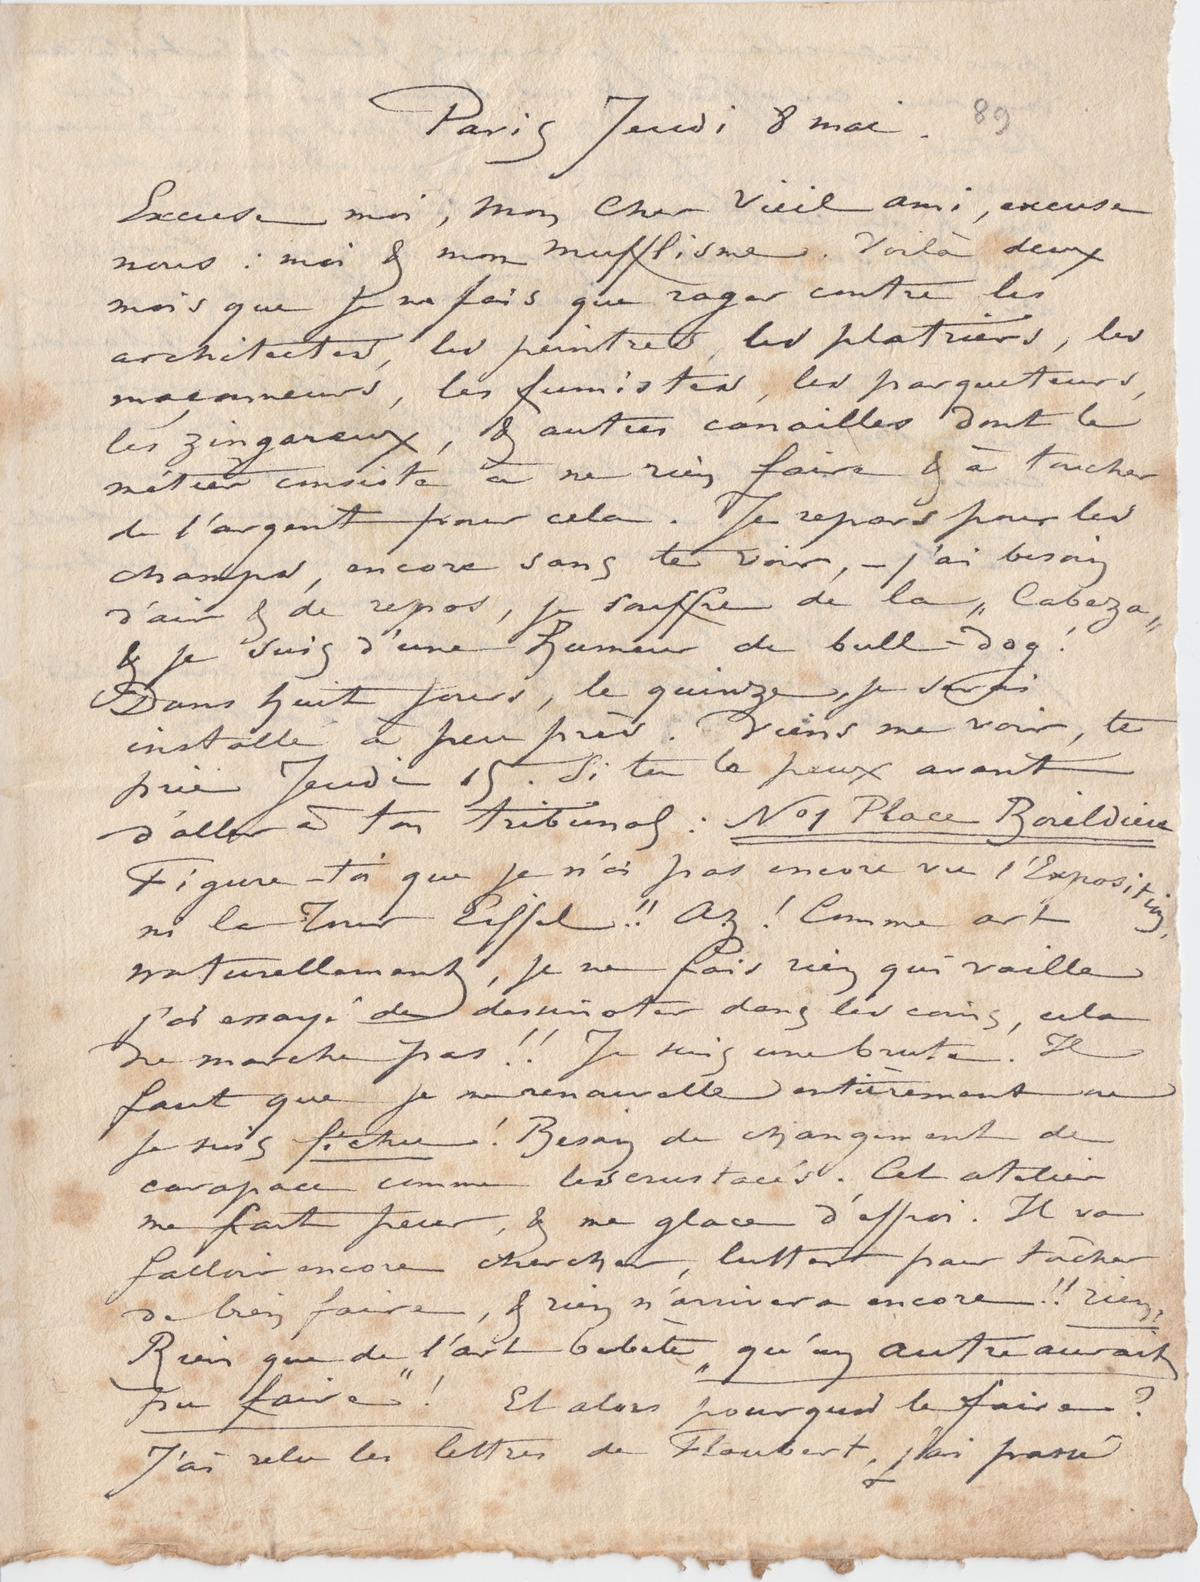 Paris Jeudi 8 mai. 89
Excuse moi, mon cher vieil ami, excuse
nous : moi & mon mufflisme. Voilà deux
mois que je ne fais que rager contre les
architectes, les peintres, les platriers, les
maçonneurs, les fumistes, les parqueteurs,
les zingareux, & autres canailles dont le
métier consiste à ne rien faire & à toucher
de l'argent pour cela. Je repars pour les
champs, encore sans te voir, - j'ai besoin
d'air & de repos, je souffre de la „Cabeza„
& je suis d'une humeur de bull-dog!
Dans huit jours, le quinze, je serai
installé à peu près. Viens me voir, te
prie Jeudi 15. Si tu le peux avant
d'aller à ton tribunal : No 1 Place Boieldieu
Figure-toi que je n'ai pas encore vu l'Exposition,
ni la Tour Eiffel!! Az! Comme art
naturellement, je ne fais rien qui vaille
j'ai essayé de dessinoter dans les coins, cela
ne marche pas!! Je suis une brute. Il
faut que je me renouvelle entièrement ou
je suis fichu! Besoin de changement de
carapace comme les crustacés. Cet atelier
me fait peur, & me glace d'effroi. Il va
falloir encore chercher, lutter pour tâcher
de bien faire, & rien n'arrivera encore!! rien,
Rien que de l'art bebête „qu'un autre aurait
pu faire"! Et alors pourquoi le faire?
J'ai relu les lettres de Flaubert, j'ai passé